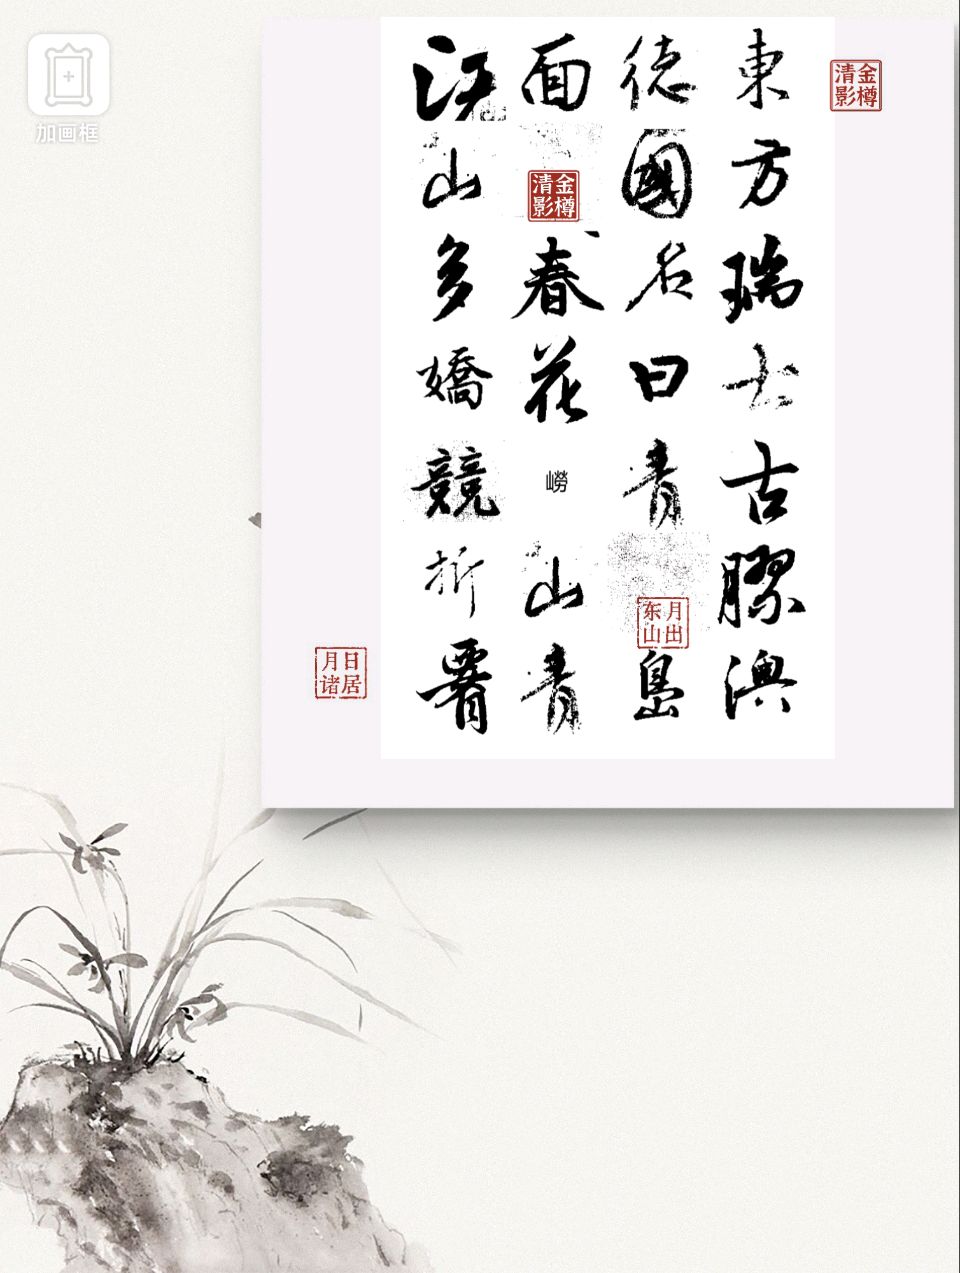 加画框
金樽清影
東方瑞士古膠澳
德國名曰青島
月出东山
面春花嶗山青
金樽清影
江山多嬌競折腰
日居月诸